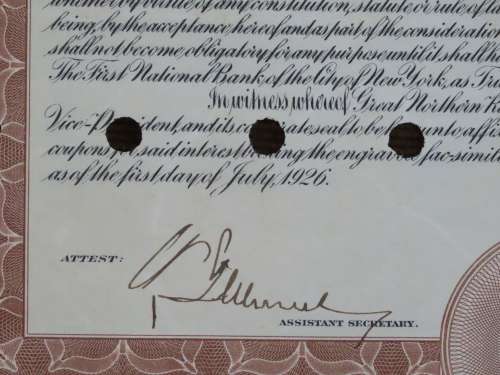 whome by virtue of any constitution, statute or rule of la
being, by the acceptance hereof and as part of the consideration
shall not become obligatory for any purpose until it shall ha
The First National Bank of the City of New York, as Tru
In witness whereof, Great Northern R
Vice-President, and its corporate seal to be hereunto affi
coupons for said interest bearing the engraved fac-simil
as of the first day of July, 1926.
ATTEST:
ASSISTANT SECRETARY.